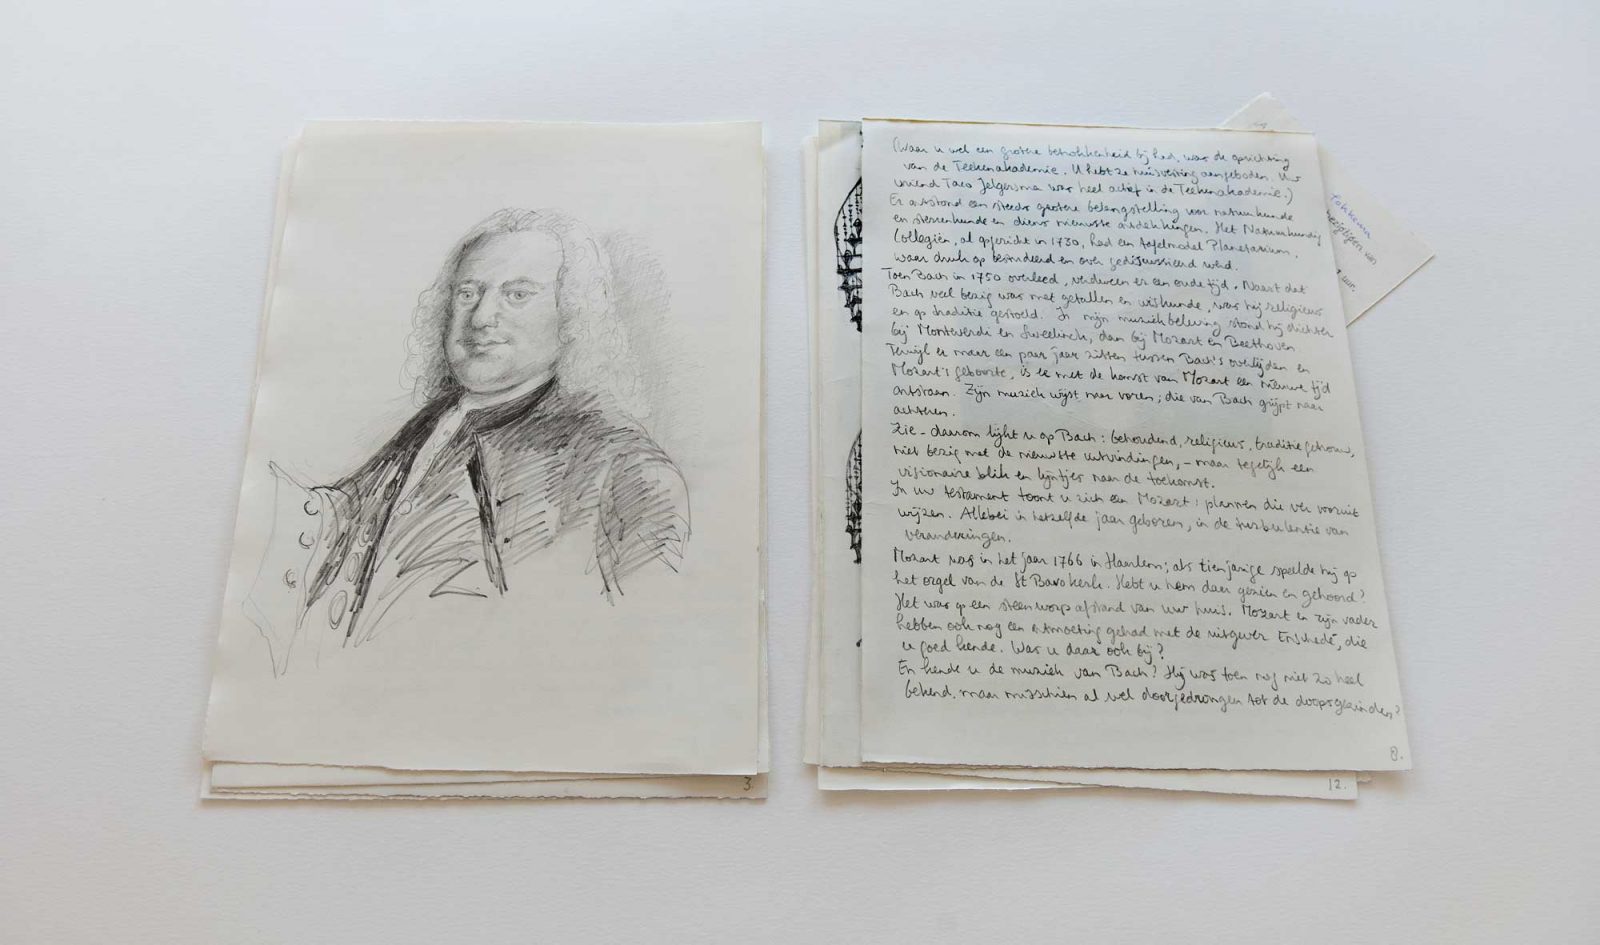 3.
(Waar u wel een grotere betrokkenheid bij had, was de oprichting
van de Teekenakademie. U hebt ze huisvesting aangeboden. Uw
vriend Taco Jelgersma was heel actief in de Teekenakademie.)
Er ontstond een steeds grotere belangstelling voor natuurkunde
en sterrenkunde en diens nieuwste ontdekkingen. Het Natuurkundig
Collegiën, al opgericht in 1730, had een tafelmodel Planetarium,
waar druk op bestudeerd en over gediscussieerd werd.
Toen Bach in 1750 overleed, verdween er een oude tijd. Naast dat
Bach veel bezig was met getallen en wiskunde, was hij religieus
en op traditie gestoeld. In mijn muziekbeleving stond hij dichter
bij Monteverdi en Sweelinck, dan bij Mozart en Beethoven
Terwijl er maar een paar jaar zitten tussen Bach's overlijden en
Mozart's geboorte, is er met de komst van Mozart een nieuwe tijd
ontstaan. Zijn muziek wijst naar voren; die van Bach grijpt naar
achteren.
Zie - daarom lijkt u op Bach: behoudend, religieus, traditiegetrouw,
niet bezig met de nieuwste uitvindingen, - maar tegelijk een
visionaire blik en lijntjes naar de toekomst.
In uw testament toont u zich een Mozart: plannen die ver vooruit
wijzen. Allebei in hetzelfde jaar geboren, in de turbulentie van
veranderingen.
Mozart was in het jaar 1766 in Haarlem; als tienjarige speelde hij op
het orgel van de St Bavokerk. Hebt u hem daar gezien en gehoord?
Het was op een steenworp afstand van uw huis. Mozart en zijn vader
hebben ook nog een ontmoeting gehad met de uitgever Enschedé, die
u goed kende. Was u daar ook bij?
En kende u de muziek van Bach? Hij was toen nog niet zo heel
bekend, maar misschien al wel doorgedrongen tot de doopsgezinden?
8.
12.
Fokkema
van
uur.